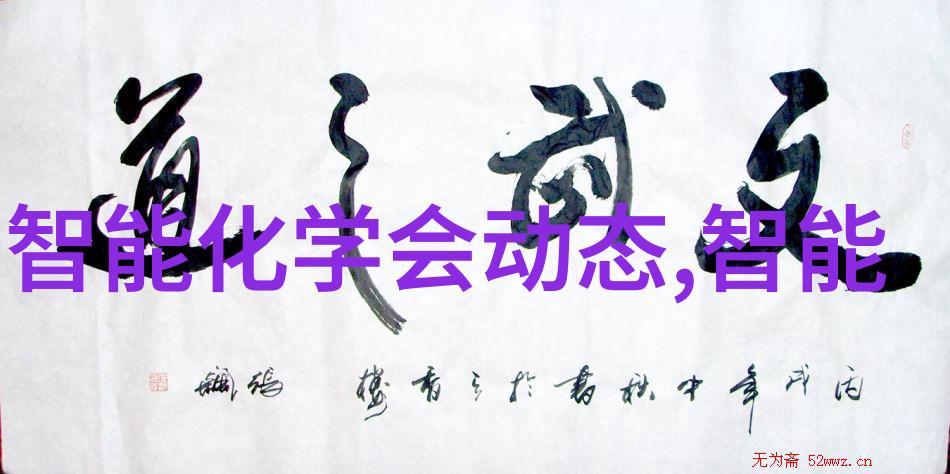 文武之道
智能化学会动态,智能
丙戌年中秋書於香樓
无为斋 52wwz.cn